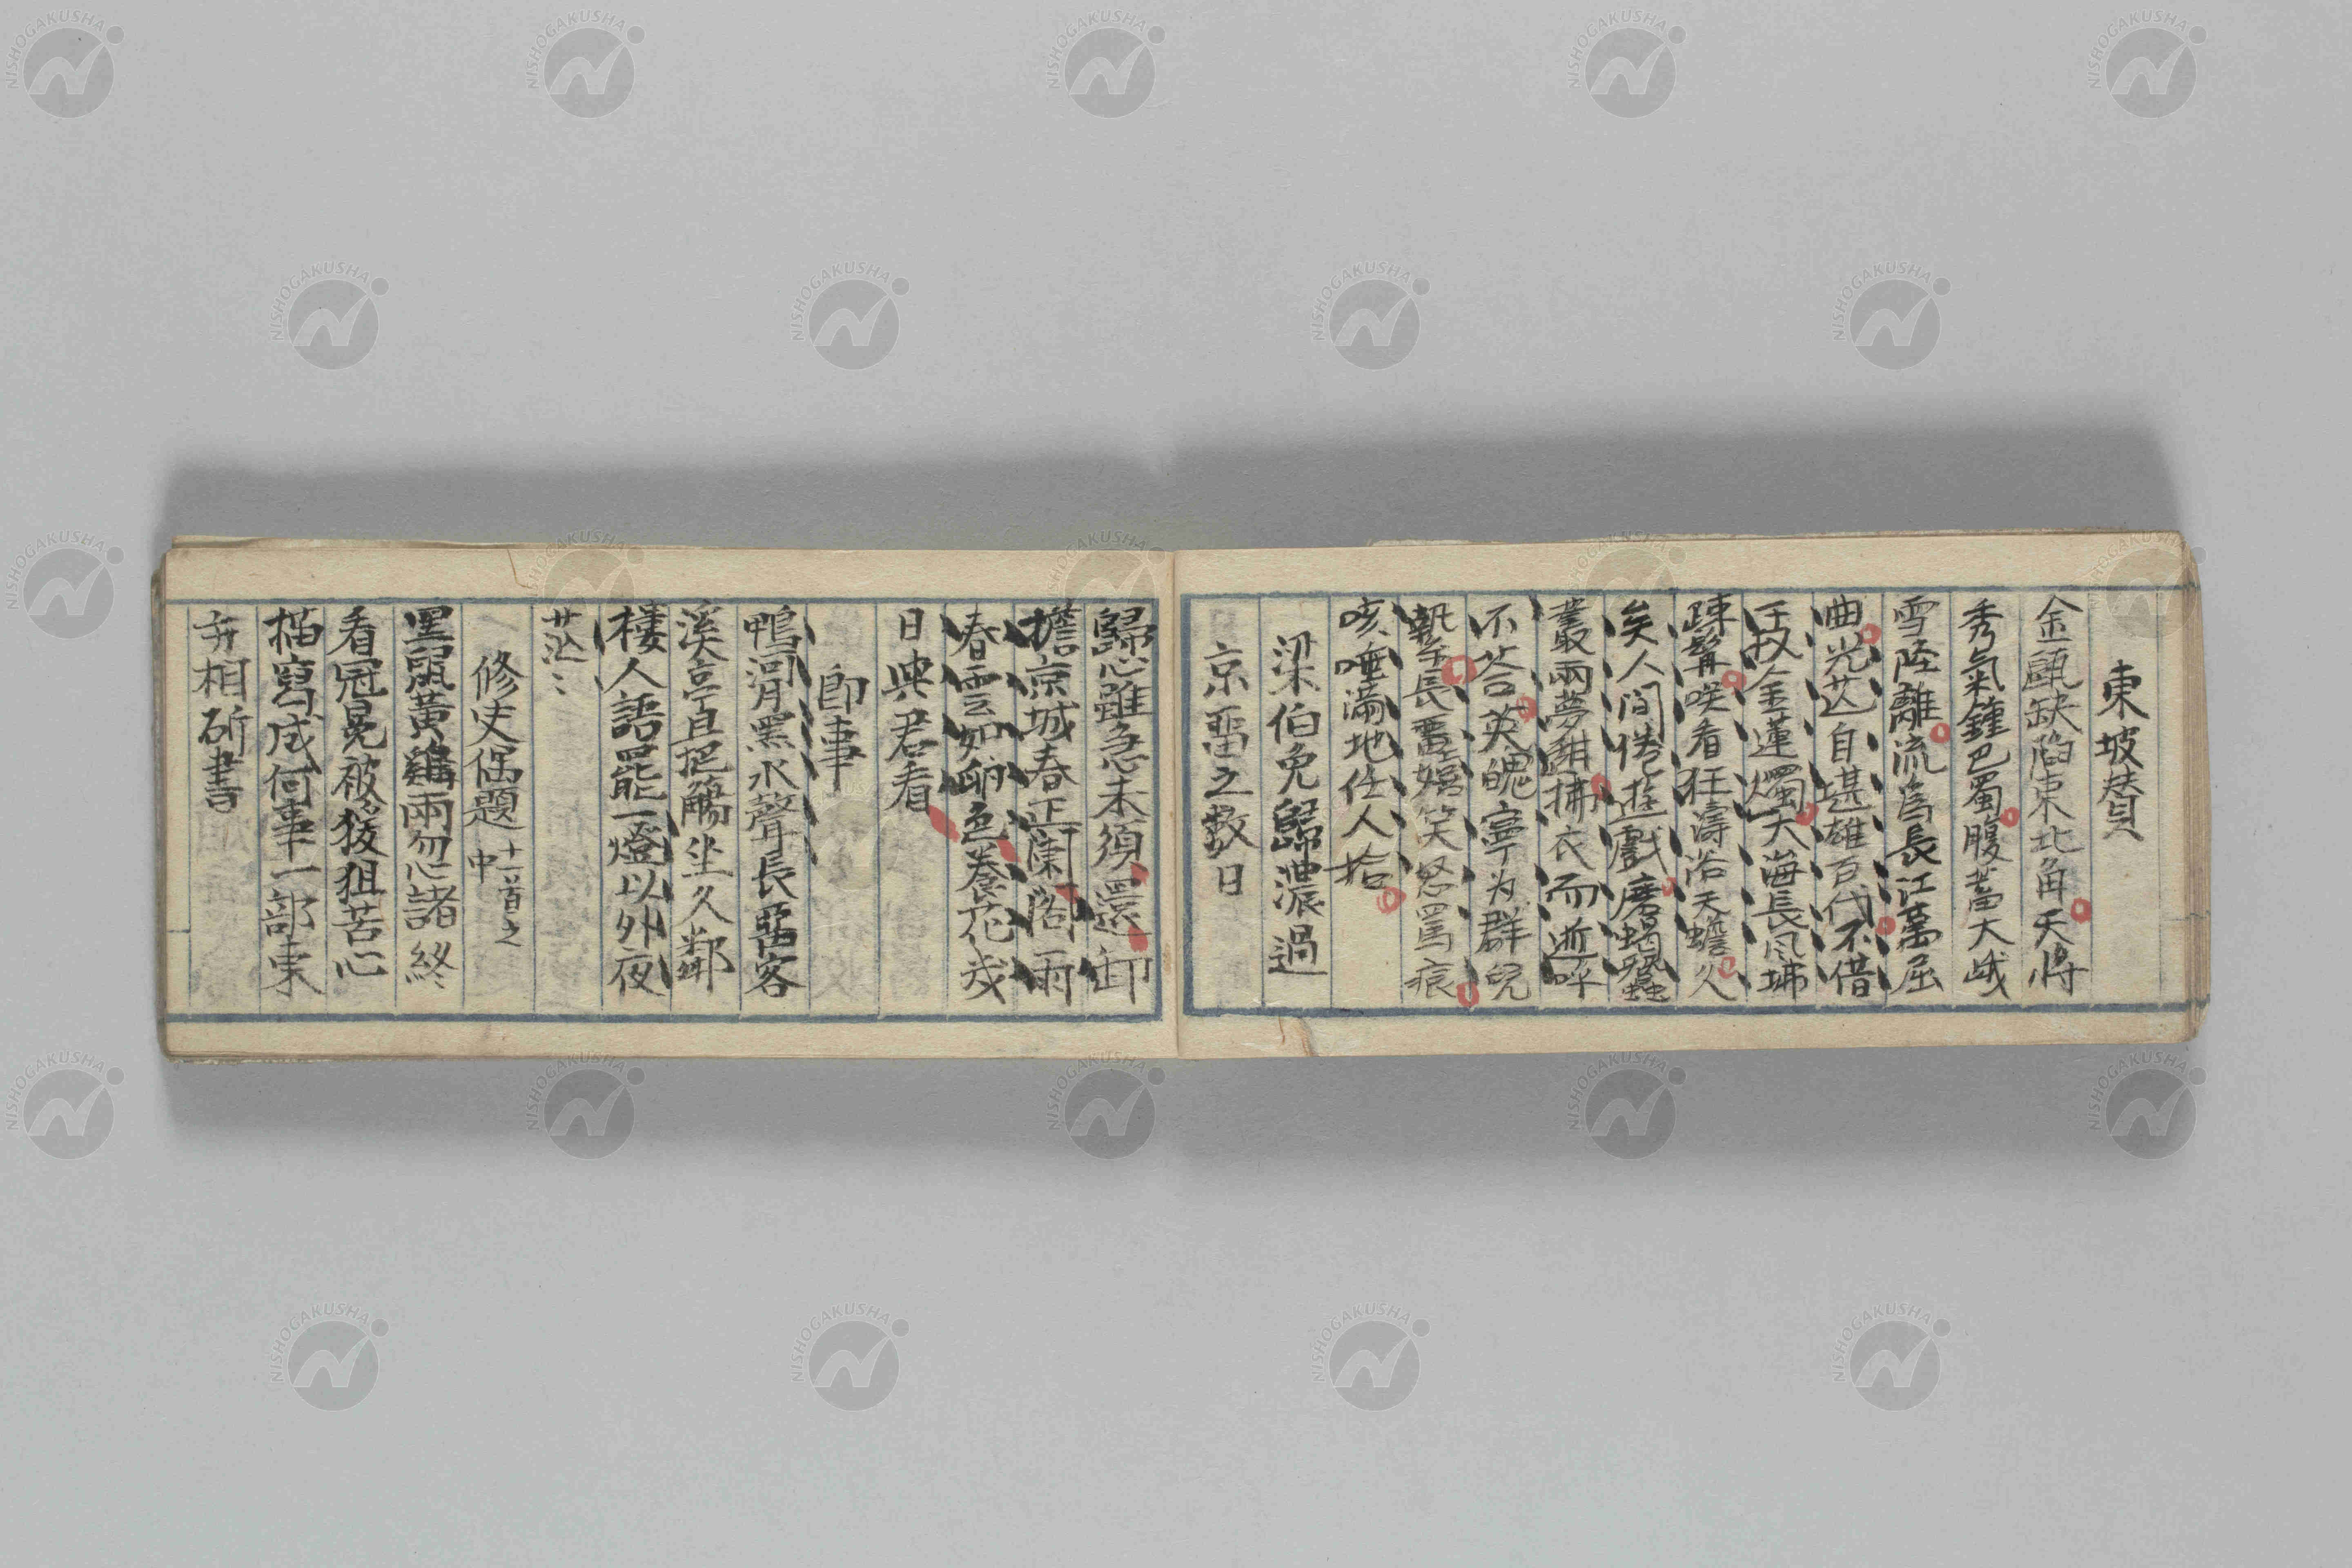 東坡賛
金甌缺陷東北角天將
秀氣鍾巴蜀腹蓄大峨
雪陸離流爲長江萬屈
曲光芒自堪雄百代不借
玉奴金蓮燭大海長風拂
疎髯咲看狂濤浴天蟾久
矣人間倦遊戲磨蝎蠶
叢兩夢翻拂衣而逝呼
不答英魄寧为群兒
縶長畱嬉笑怒罵痕
咳唾滿地任人拾
梁伯兔歸濃過
京畱之數日
歸心雖急未須還卸
擔京城春正闌陌雨
春雲如晦色養花幾
日與君看
即事
鴨河月黑水聲長惡客
溪亭且把觴坐久鄰
樓人語罷一燈以外夜
茫〻
修史偶題十一首之
中
黑鼠黃雞兩勿心諸終
看冠冕被猨狙苦心
描寫成何事一部東
方相斫書
NISHOGAKUSHA